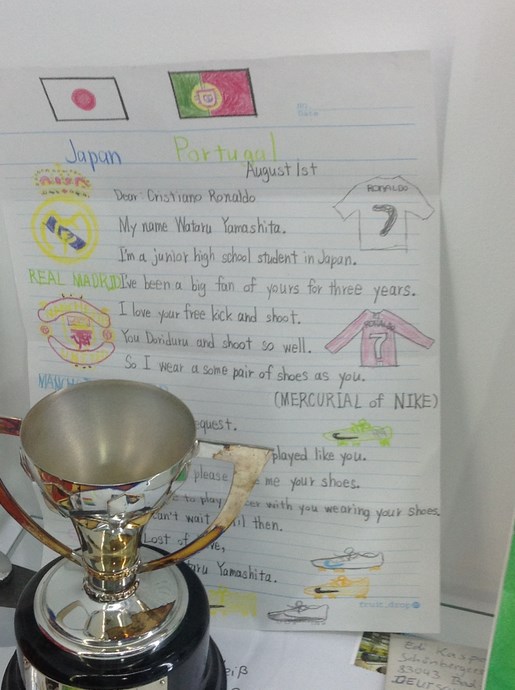 Japan Portugal
August 1st
Dear: Cristiano Ronaldo
My name Wataru Yamashita.
I'm a junior high school student in Japan.
REAL MADRID I've been a big fan of yours for three years.
I love your free kick and shoot.
You Doriduru and shoot so well.
So I wear a some pair of shoes as you.
(MERCURIAL of NIKE)
quest.
played like you.
please me your shoes.
to play with you wearing your shoes.
can't wait til then.
Lost of
taru Yamashita.
RONALDO
7
RONALDO
7
No.
Date
Edi Kaspa
83043 Bad